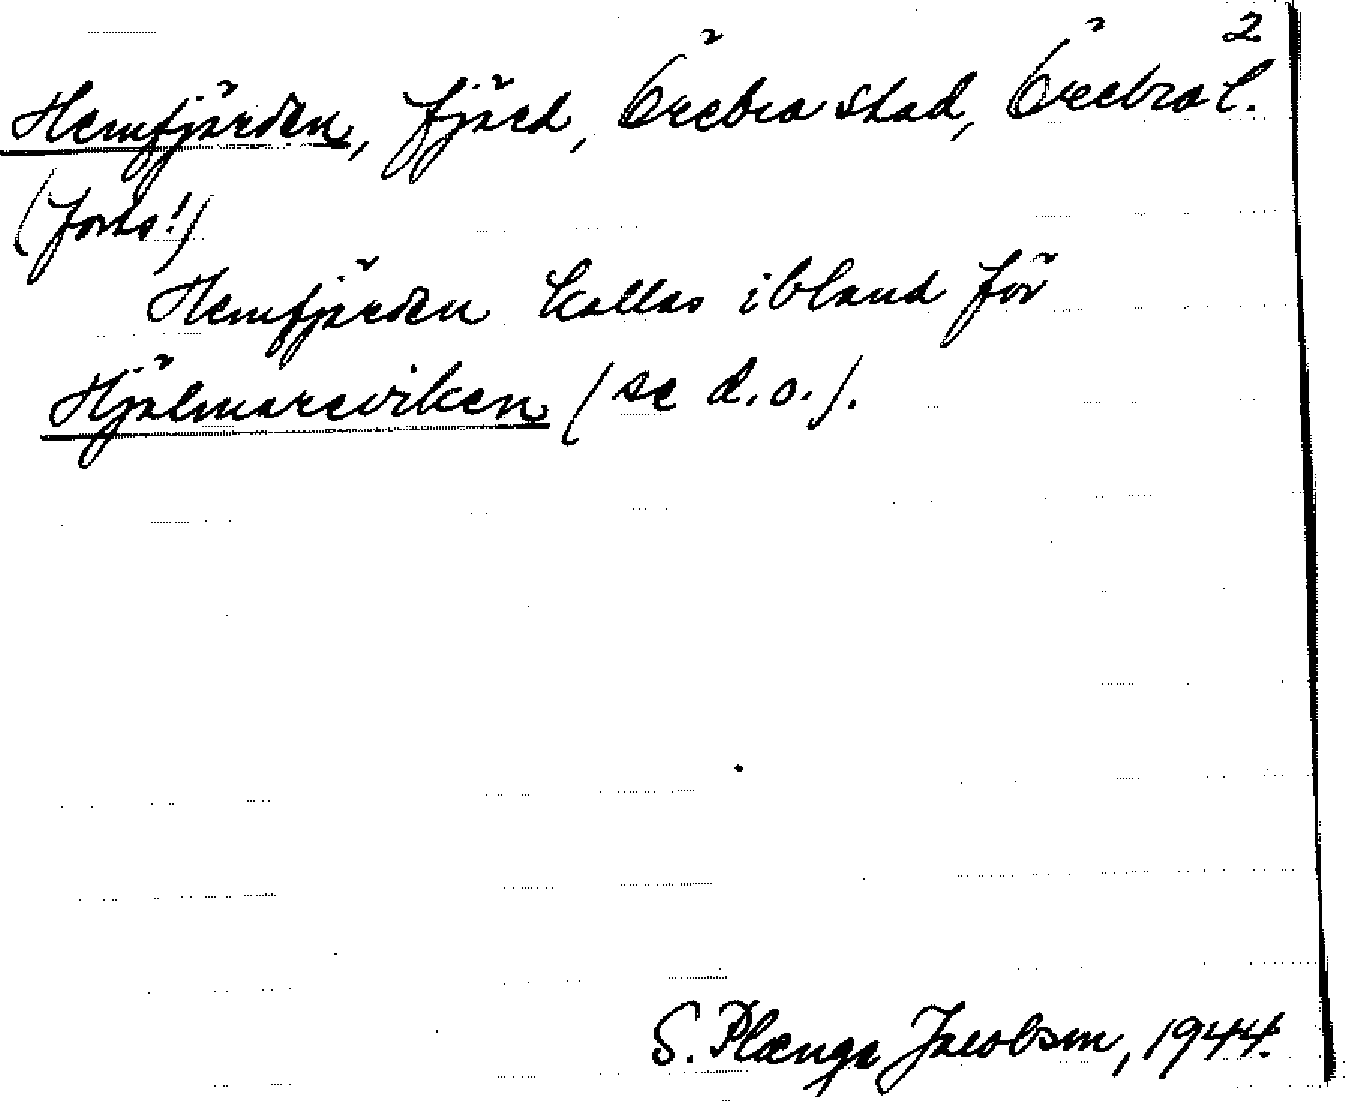 2
Hemfjärden, fjärd, Örebro stad, Örebro l.
(forts!)
Hemfjärden kallas ibland för
Hjälmareviken (se d.o.).
S. Plænge Jacobson, 1944.